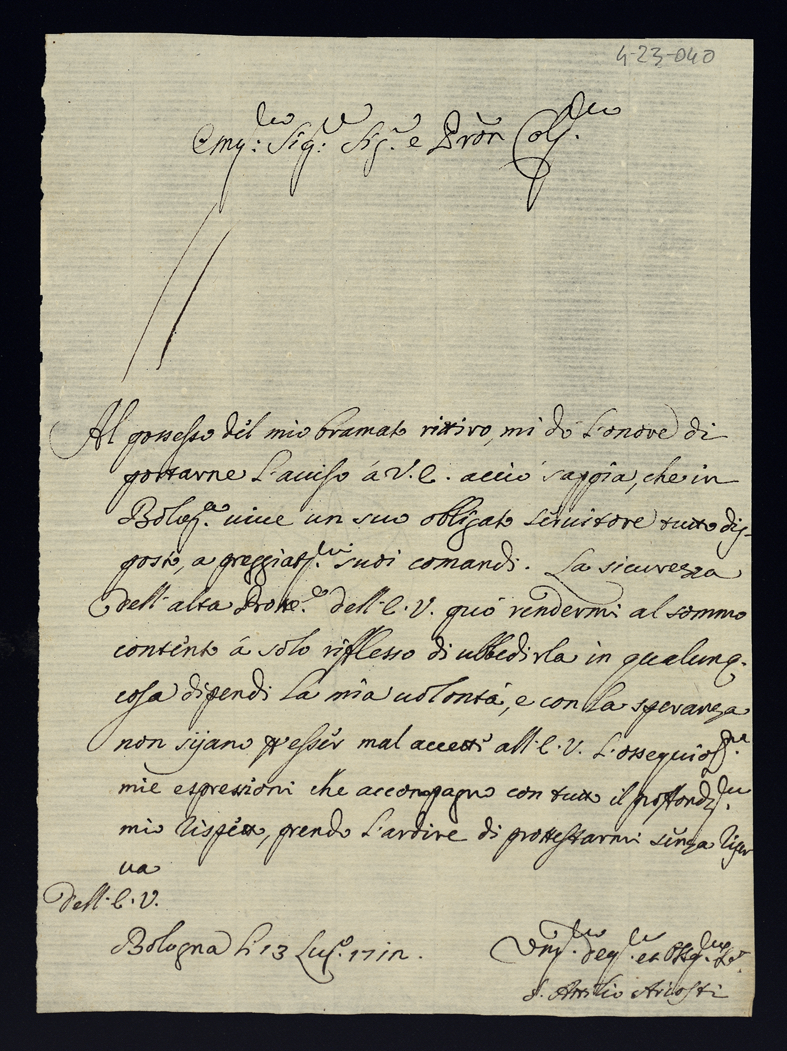 4-23-040
Em:mo Sig:r Sig.r e Pron Col.mo
Al possesso del mio bramato rittiro, mi dò l'onore di
portarne l'auiso à V.E. acciò sappia, che in
Bolog.a uiue un suo obligato seruitore tutto dis-
posto, a preggiatis.mi suoi comandi. La sicurezza
dell'alta Prote.e dell'E.V. può rendermi al sommo
contento à solo riflesso di ubbedirla in qualunq.
cosa dipendi la mia uolontà, e con la speranza
non sijano p esser mal accetti all'E.V. l'ossequios.me
mie espressioni che accompagno con tutto il proffondis.mo
mio rispetto, prendo l'ardire di prottestarmi senza riser
ua
Dell'E.V.
Bologna li 13 Lug.o 17
Um.mo Deu.mo et Obblig.mo Ser.
Attilio Ariosti